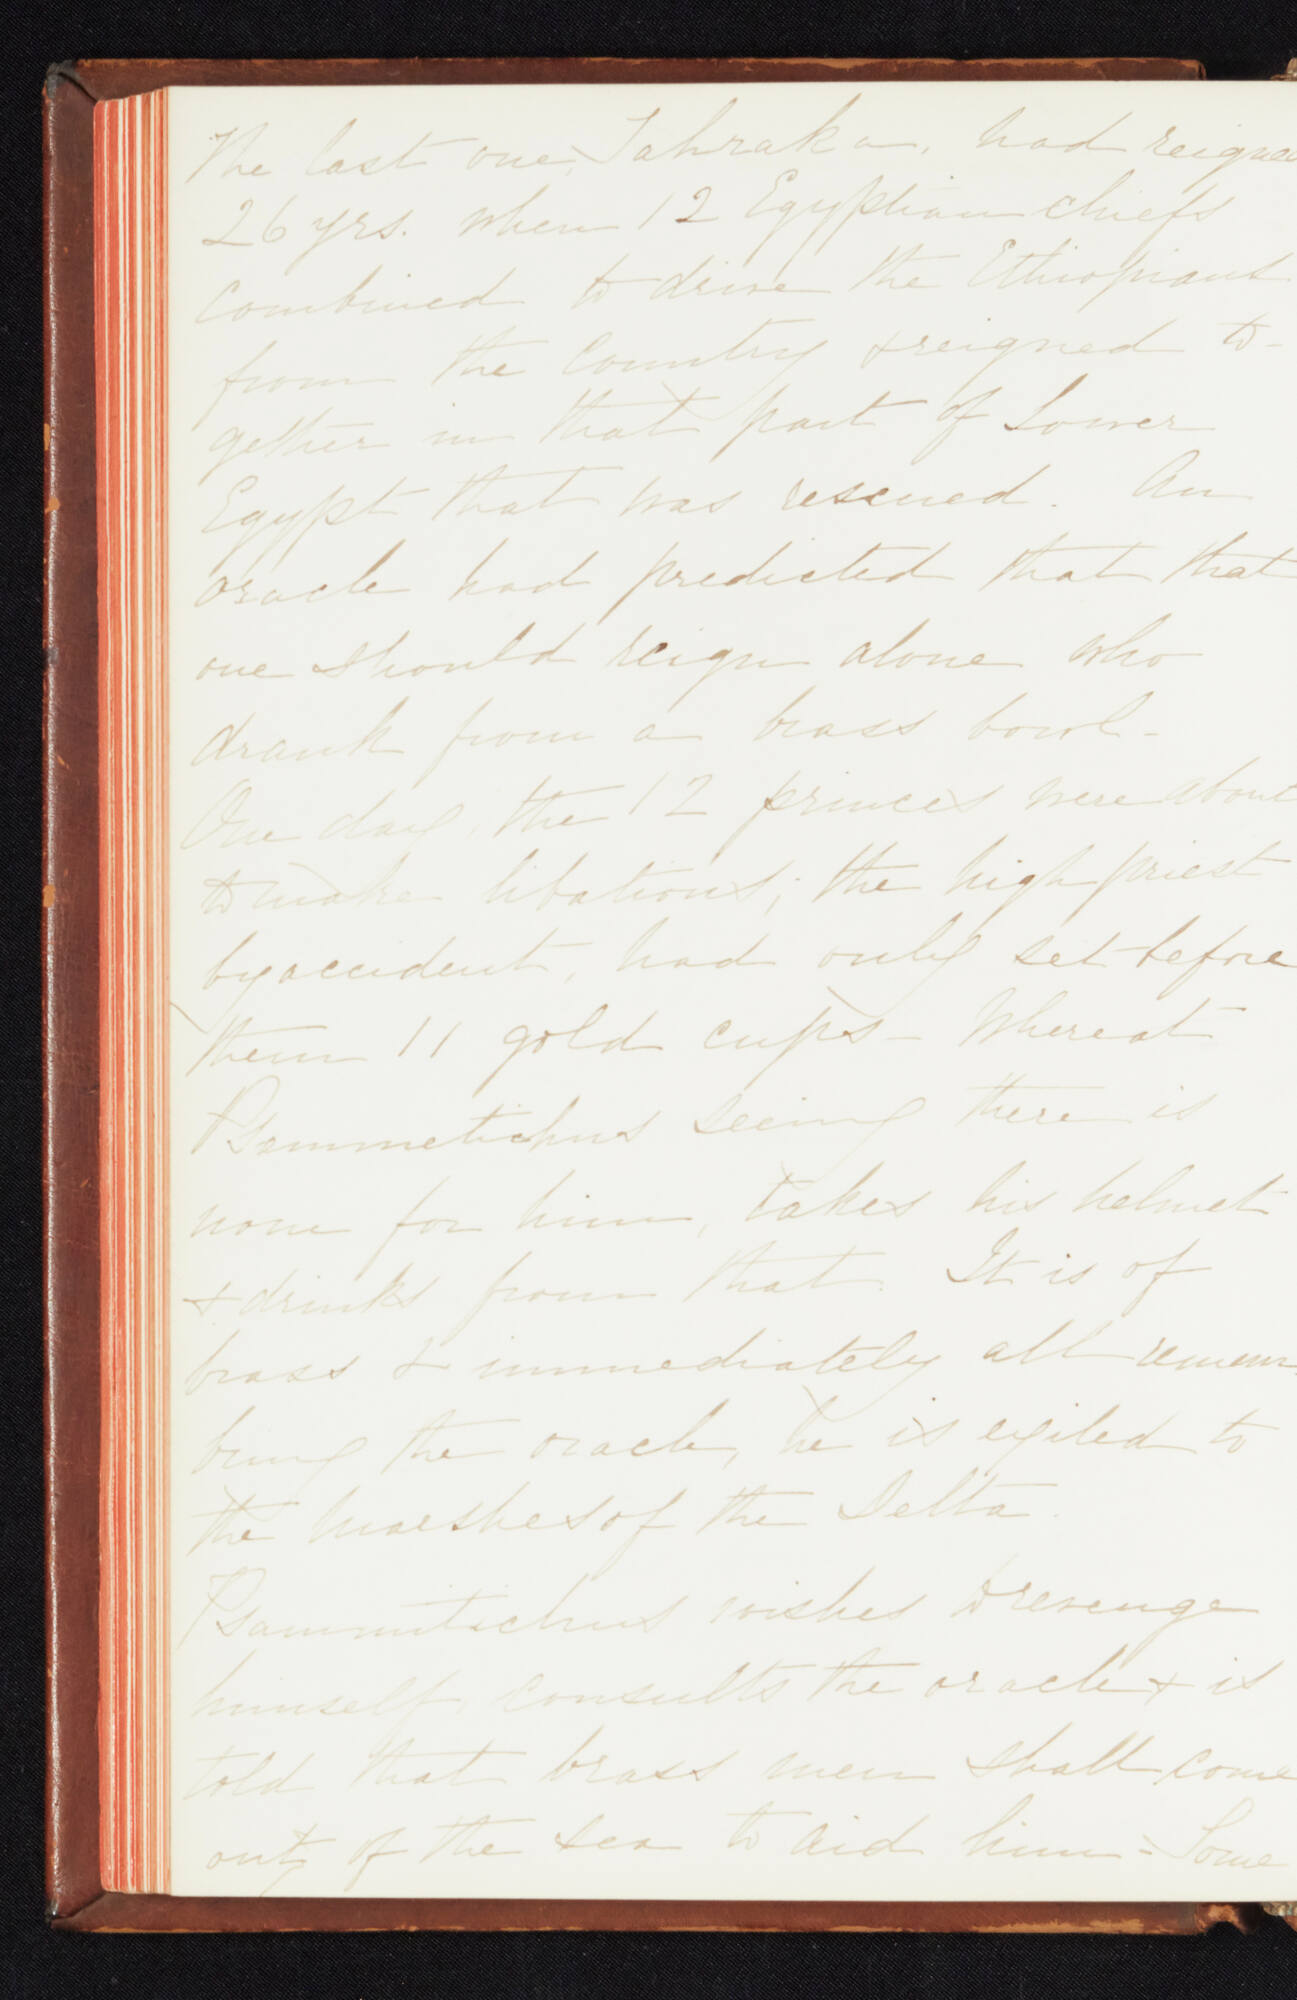 The last one, Tahraka, had reigned
26 yrs. when 12 Egyptian chiefs
combined to drive the Ethiopians
from the Country & reigned to-
gether in that part of Lower
Egypt that was rescued. An
oracle had predicted that that
one should reign alone who
drank from a brass bowl-
One day, the 12 princes were about
to make libations; the high priest
by accident, had only set before
them 11 gold cups - Whereat
Psammetichus seeing there is
none for him, takes his helmet
& drinks from that. It is of
brass & immediately all remem-
bring the oracle, he is exiled to
the Marshes of the Delta.
Psammitichus wishes to revenge
himself, consults the oracle & is
told that brass men shall come
out of the sea to aid him - Some